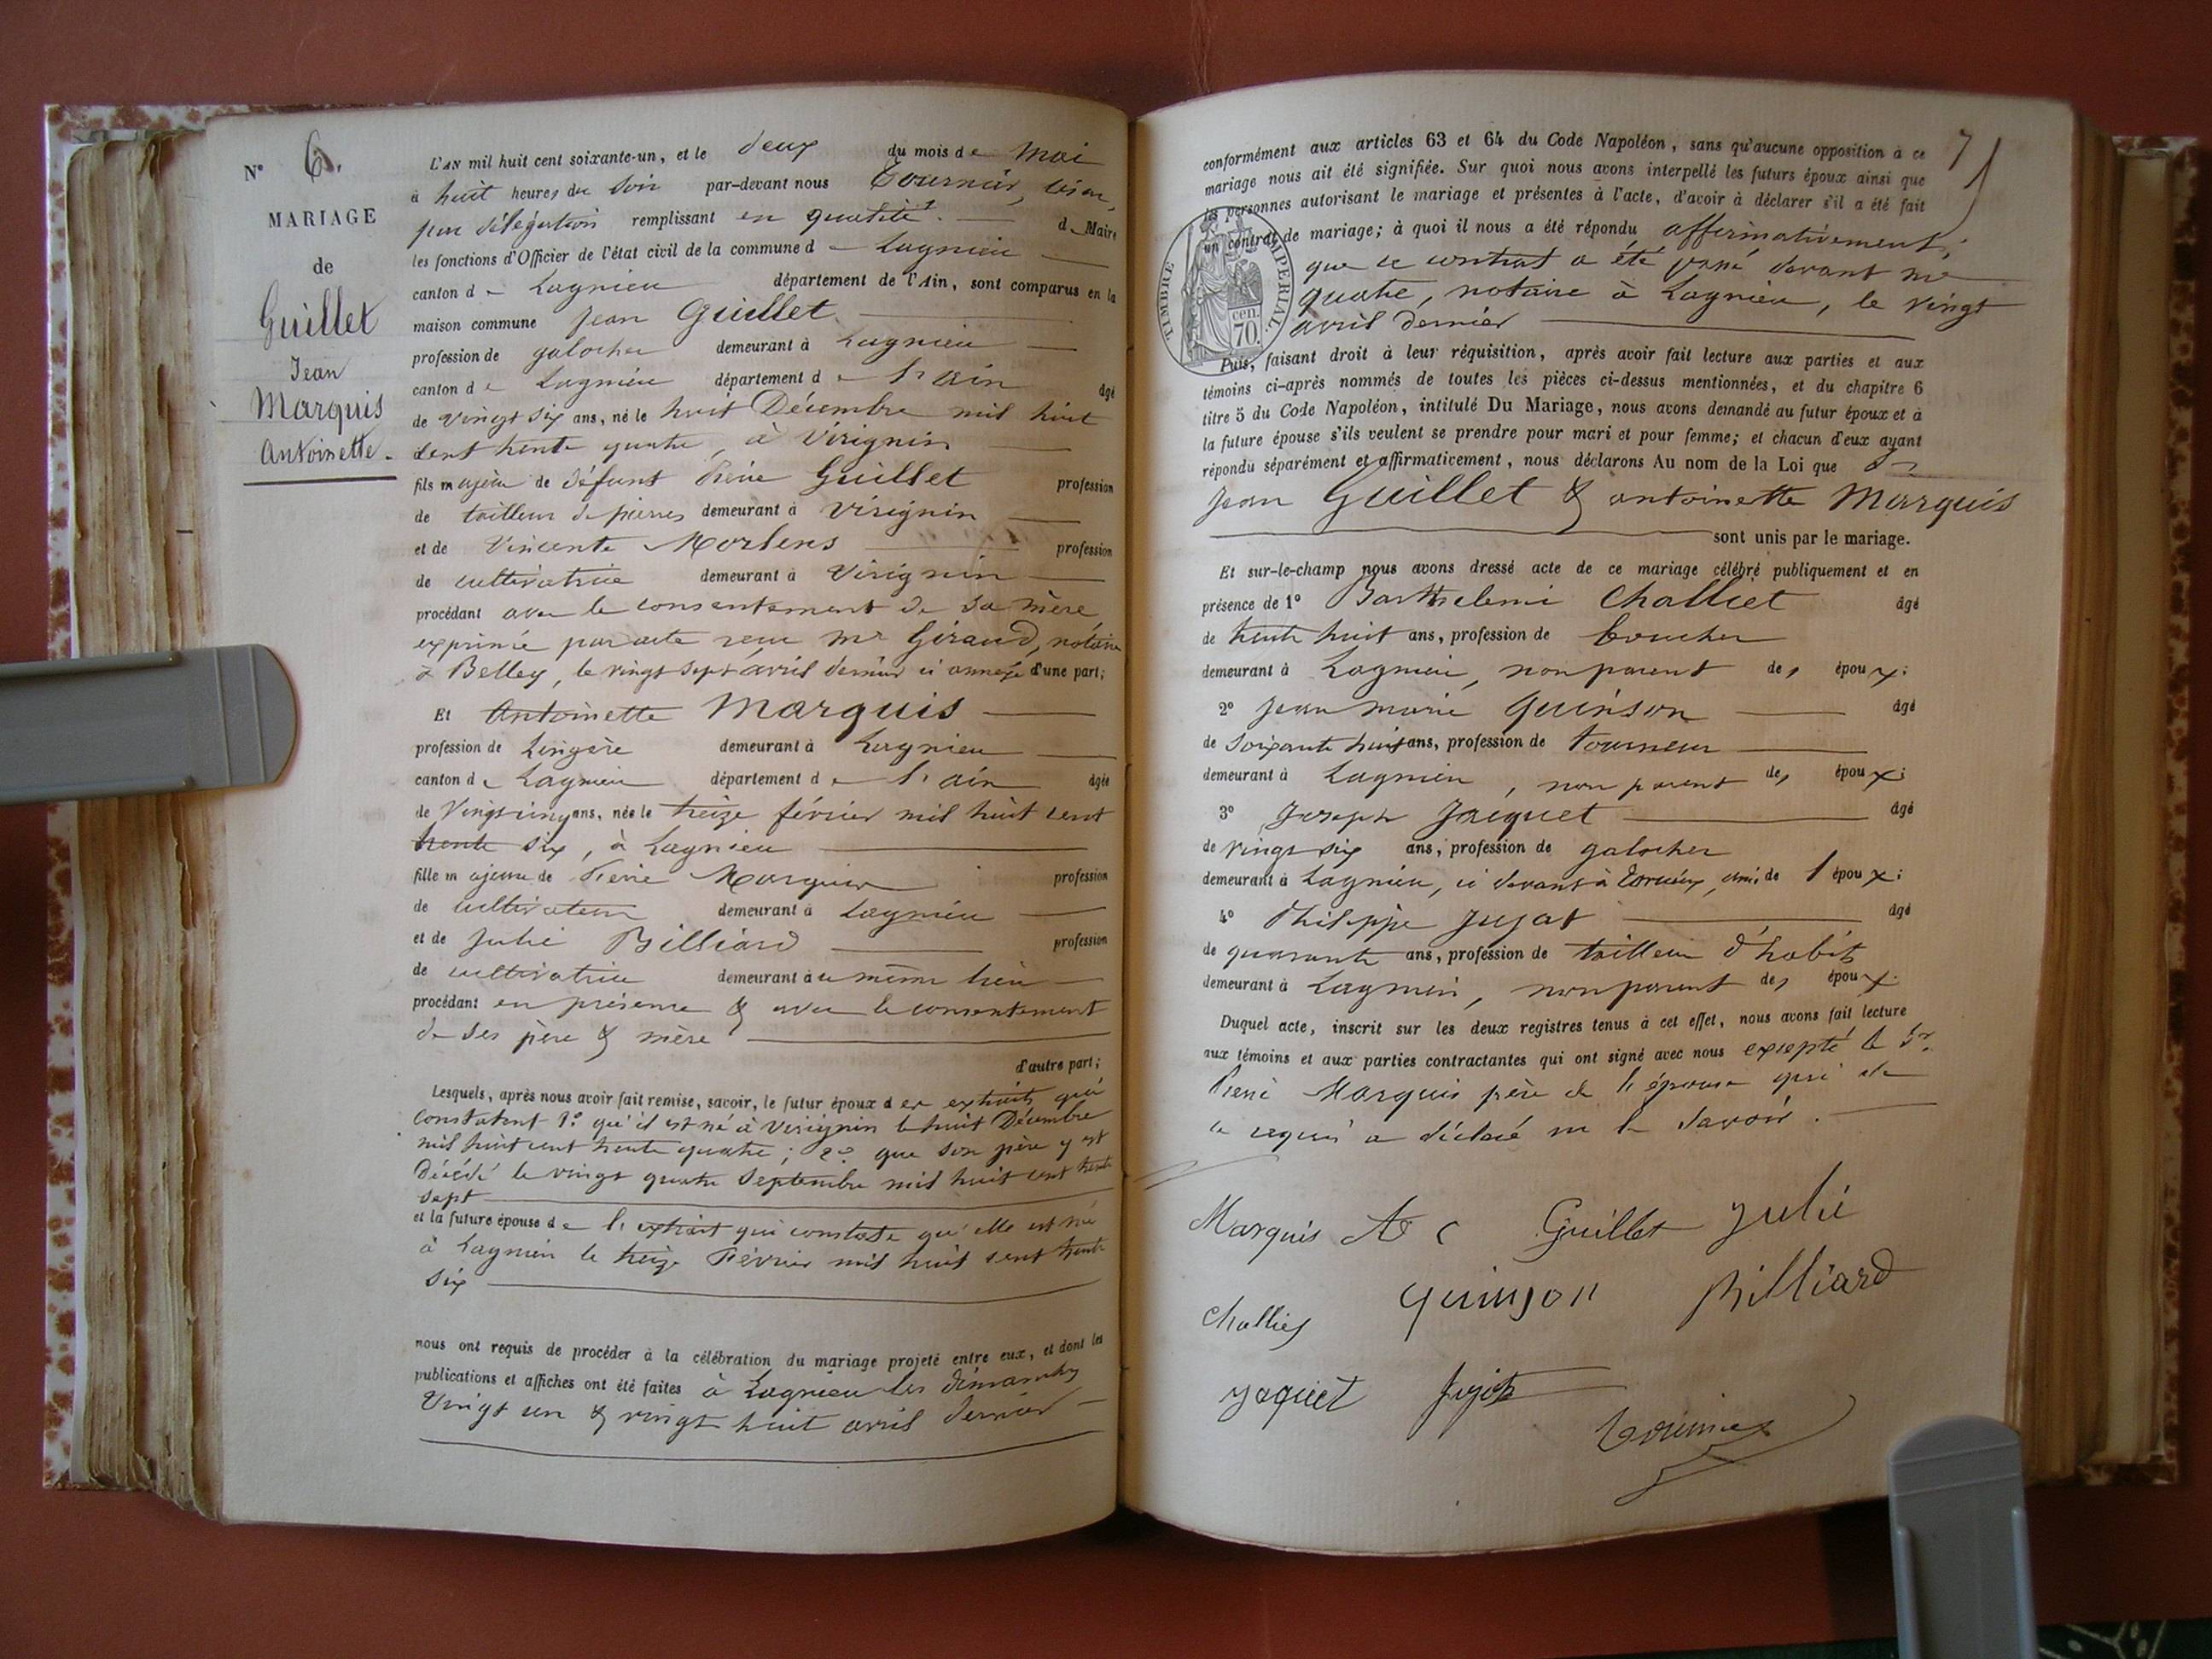 N° 6.
MARIAGE
de
Guillet
Jean
Marquis
Antoinette.
L'AN mil huit cent soixante-un, et le deux du mois de Mai
à huit heures du Soir par-devant nous Tournier,
par délégation remplissant en qualité de Maire
les fonctions d'Officier de l'état civil de la commune de Lagnieu
canton de Lagnieu département de l'Ain, sont comparus en la
maison commune Jean Guillet
profession de galocher demeurant à Lagnieu
canton de Lagnieu département de l'ain âgé
de vingt six ans, né le huit Décembre mil huit
cent trente quatre, à Virignin
fils majeur de défunt Pierre Guillet profession
de tailleur de pierres demeurant à Virignin
et de Vincente Morlens profession
de cultivatrice demeurant à Virignin
procédant avec le consentement de sa mère
exprimé par acte reçu mr Géraud, notaire
à Belley, le vingt sept avril dernier ci annexé d'une part;
Et Antoinette Marquis
profession de Lingère demeurant à Lagnieu
canton de Lagnieu département de l'ain âgée
de Vingt cinq ans, née le treize février mil huit cent
trente six, à Lagnieu
fille majeure de Pierre Marquis profession
de cultivateur demeurant à Lagnieu
et de Julie Billiard profession
de cultivatrice demeurant au même lieu
procédant en présence & avec le consentement
de ses père & mère
d'autre part;
Lesquels, après nous avoir fait remise, savoir, le futur époux des extraits qui
constatent 1° qu'il est né à Virignin le huit Décembre
mil huit cent trente quatre; 2° que son père y est
Décédé le vingt quatre Septembre mil huit cent trente
sept
et la future épouse de l'extrait qui constate qu'elle est née
à Lagnieu le treize Février mil huit cent trente
six
nous ont requis de procéder à la célébration du mariage projeté entre eux, et dont les
publications et affiches ont été faites à Lagnieu les dimanches
Vingt un & vingt huit avril dernier
7
conformément aux articles 63 et 64 du Code Napoléon, sans qu'aucune opposition à ce
mariage nous ait été signifiée. Sur quoi nous avons interpellé les futurs époux ainsi que
les personnes autorisant le mariage et présentes à l'acte, d'avoir à déclarer s'il a été fait
un contrat de mariage; à quoi il nous a été répondu affirmativement;
que ce contrat a été passé devant me
quatre, notaire à Lagnieu, le vingt
avril dernier
TIMBRE IMPERIAL.
70. cen.
Puis, faisant droit à leur réquisition, après avoir fait lecture aux parties et aux
témoins ci-après nommés de toutes les pièces ci-dessus mentionnées, et du chapitre 6
titre 5 du Code Napoléon, intitulé Du Mariage, nous avons demandé au futur époux et à
la future épouse s'ils veulent se prendre pour mari et pour femme; et chacun d'eux ayant
répondu séparément et affirmativement, nous déclarons Au nom de la Loi que
Jean Guillet & antoinette Marquis
sont unis par le mariage.
Et sur-le-champ nous avons dressé acte de ce mariage célébré publiquement et en
présence de 1° Barthelemi Challiet âgé
de trente huit ans, profession de boucher
demeurant à Lagnieu, non parent des époux;
2° Jean Marie Quinson âgé
de soixante huit ans, profession de tourneur
demeurant à Lagnieu, non parent des époux;
3° Joseph Jacquet âgé
de vingt six ans, profession de galocher
demeurant à Lagnieu, ci devant à ami de l'époux;
4° Philippe Jujat âgé
de quarante ans, profession de tailleur d'habits
demeurant à Lagnieu, non parent des époux.
Duquel acte, inscrit sur les deux registres tenus à cet effet, nous avons fait lecture
aux témoins et aux parties contractantes qui ont signé avec nous excepté le Sr.
Pierre Marquis père de l'épouse qui de
ce requis a déclaré ne le savoir.
Marquis Guillet Julie
Challiey Quinson Billiard
Jaquet Jujat
Tournier